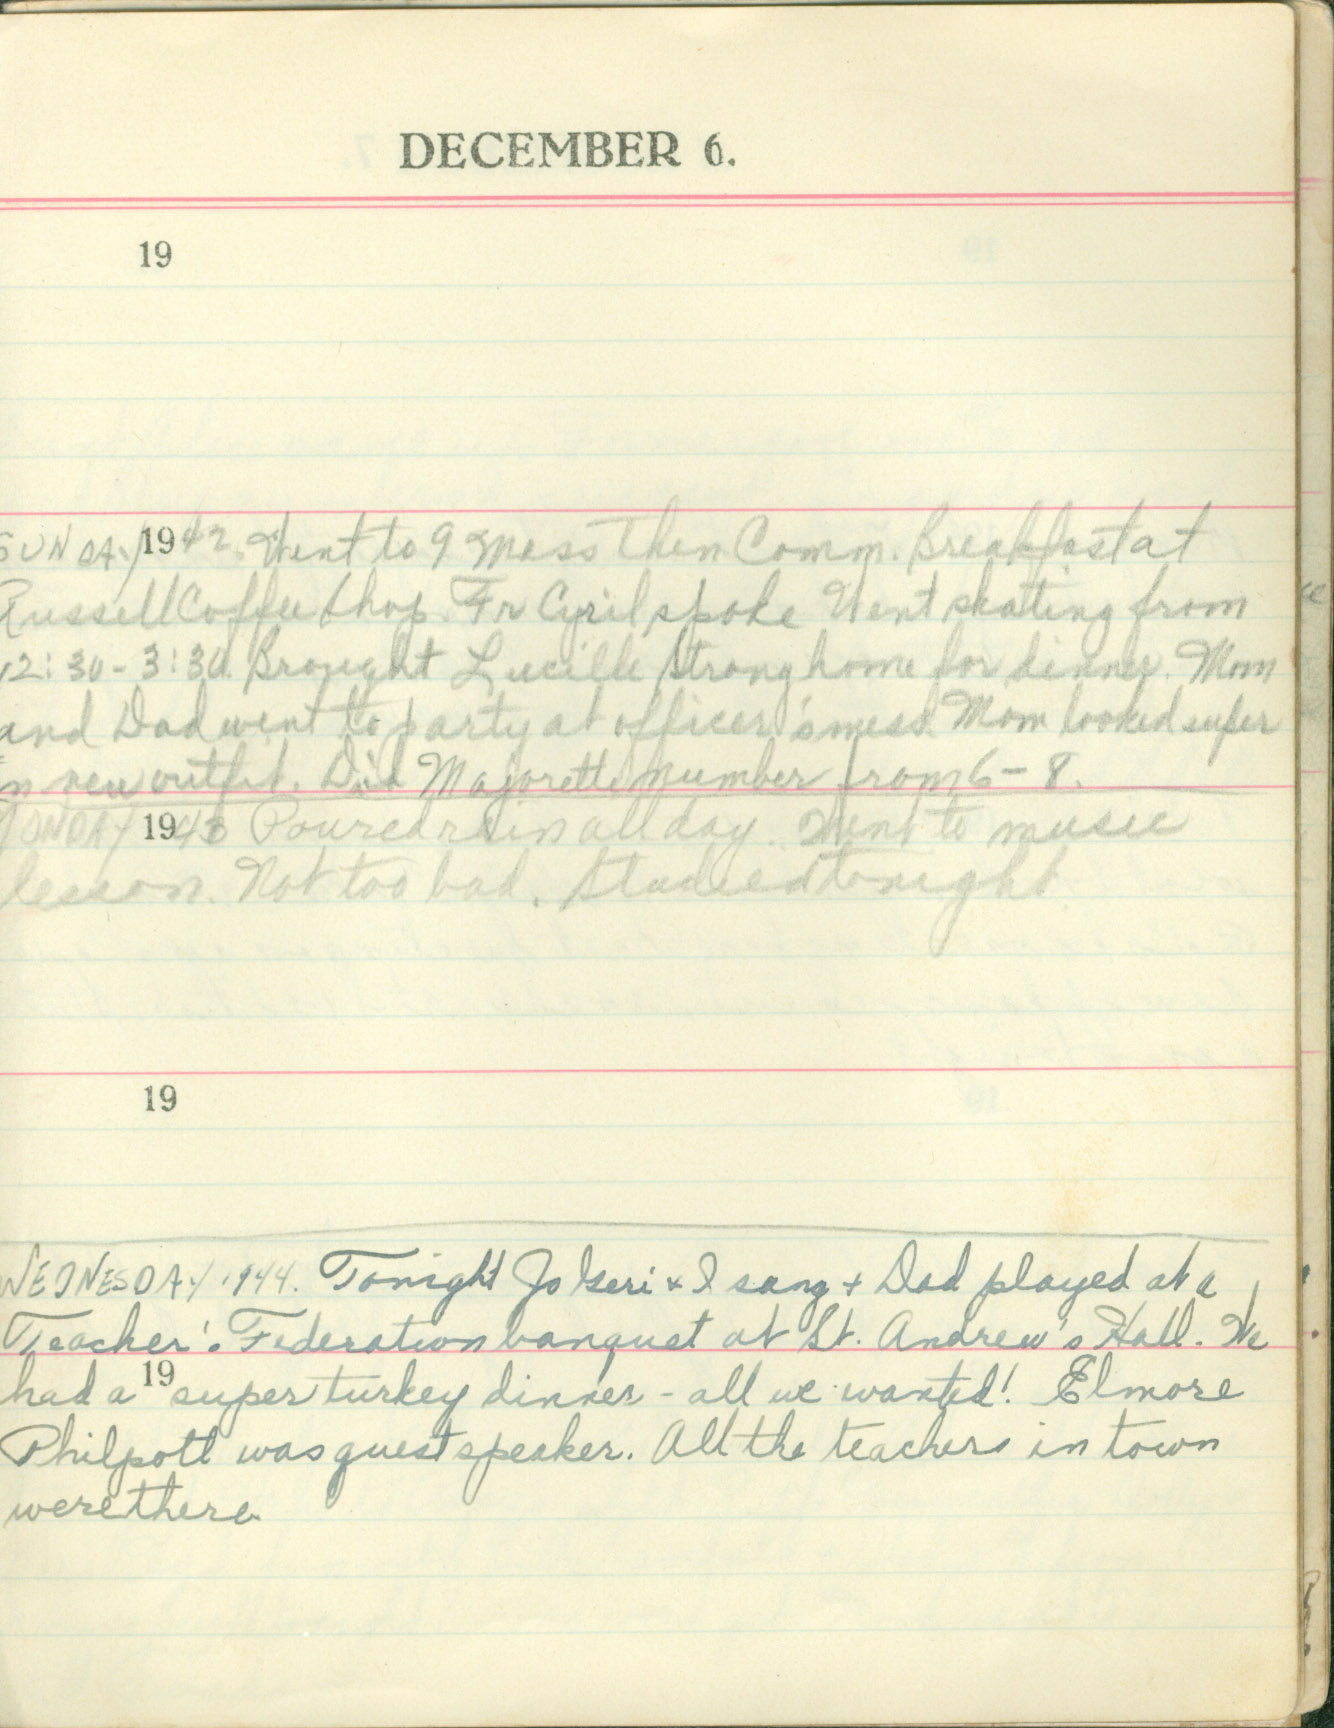 DECEMBER 6.
19
SUNDAY 1942. Went to 9 Mass Then Comm. Breakfast at
Russell Coffee Shop. Fr Cyril spoke Went skating from
12:30-3:30. Brought Lucille Strong home for dinner. Mom
and Dad went to party at officer's mess. Mom looked super
in new outfit. Did Majorette number from 6-8.
MONDAY 1943 Poured rain all day. Went to music
lesson. Not too bad. Studied tonight.
19
WEDNESDAY 1944. Tonight Jo Geri + I sang + Dad played at a
Teacher's Federation banquet at St. Andrew's Hall. We
19
had a super turkey dinner - all we wanted! Elmore
Philpott was guest speaker. All the teachers in town
were there.